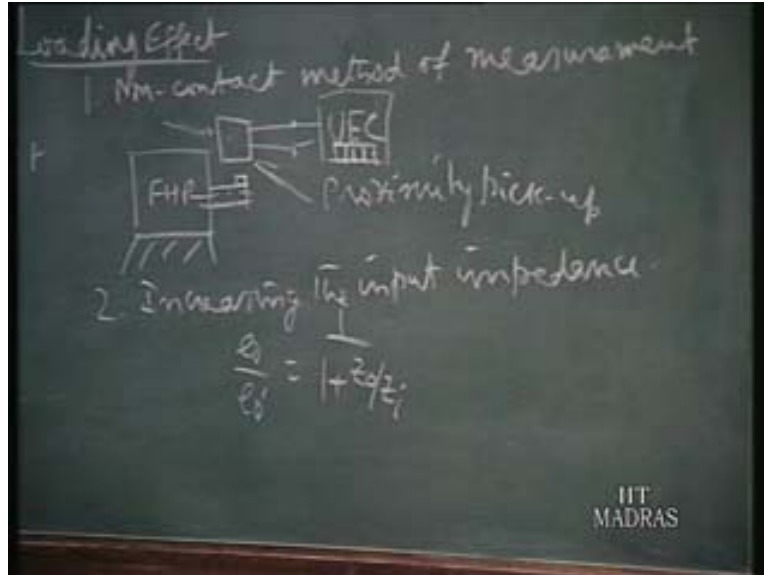 Loading Effect
1. Non-contact method of measurement
UEC
FHP
Proximity pick-up
2. Increasing the input impedance.
1
= 1+ Zo/Zi
IIT
MADRAS